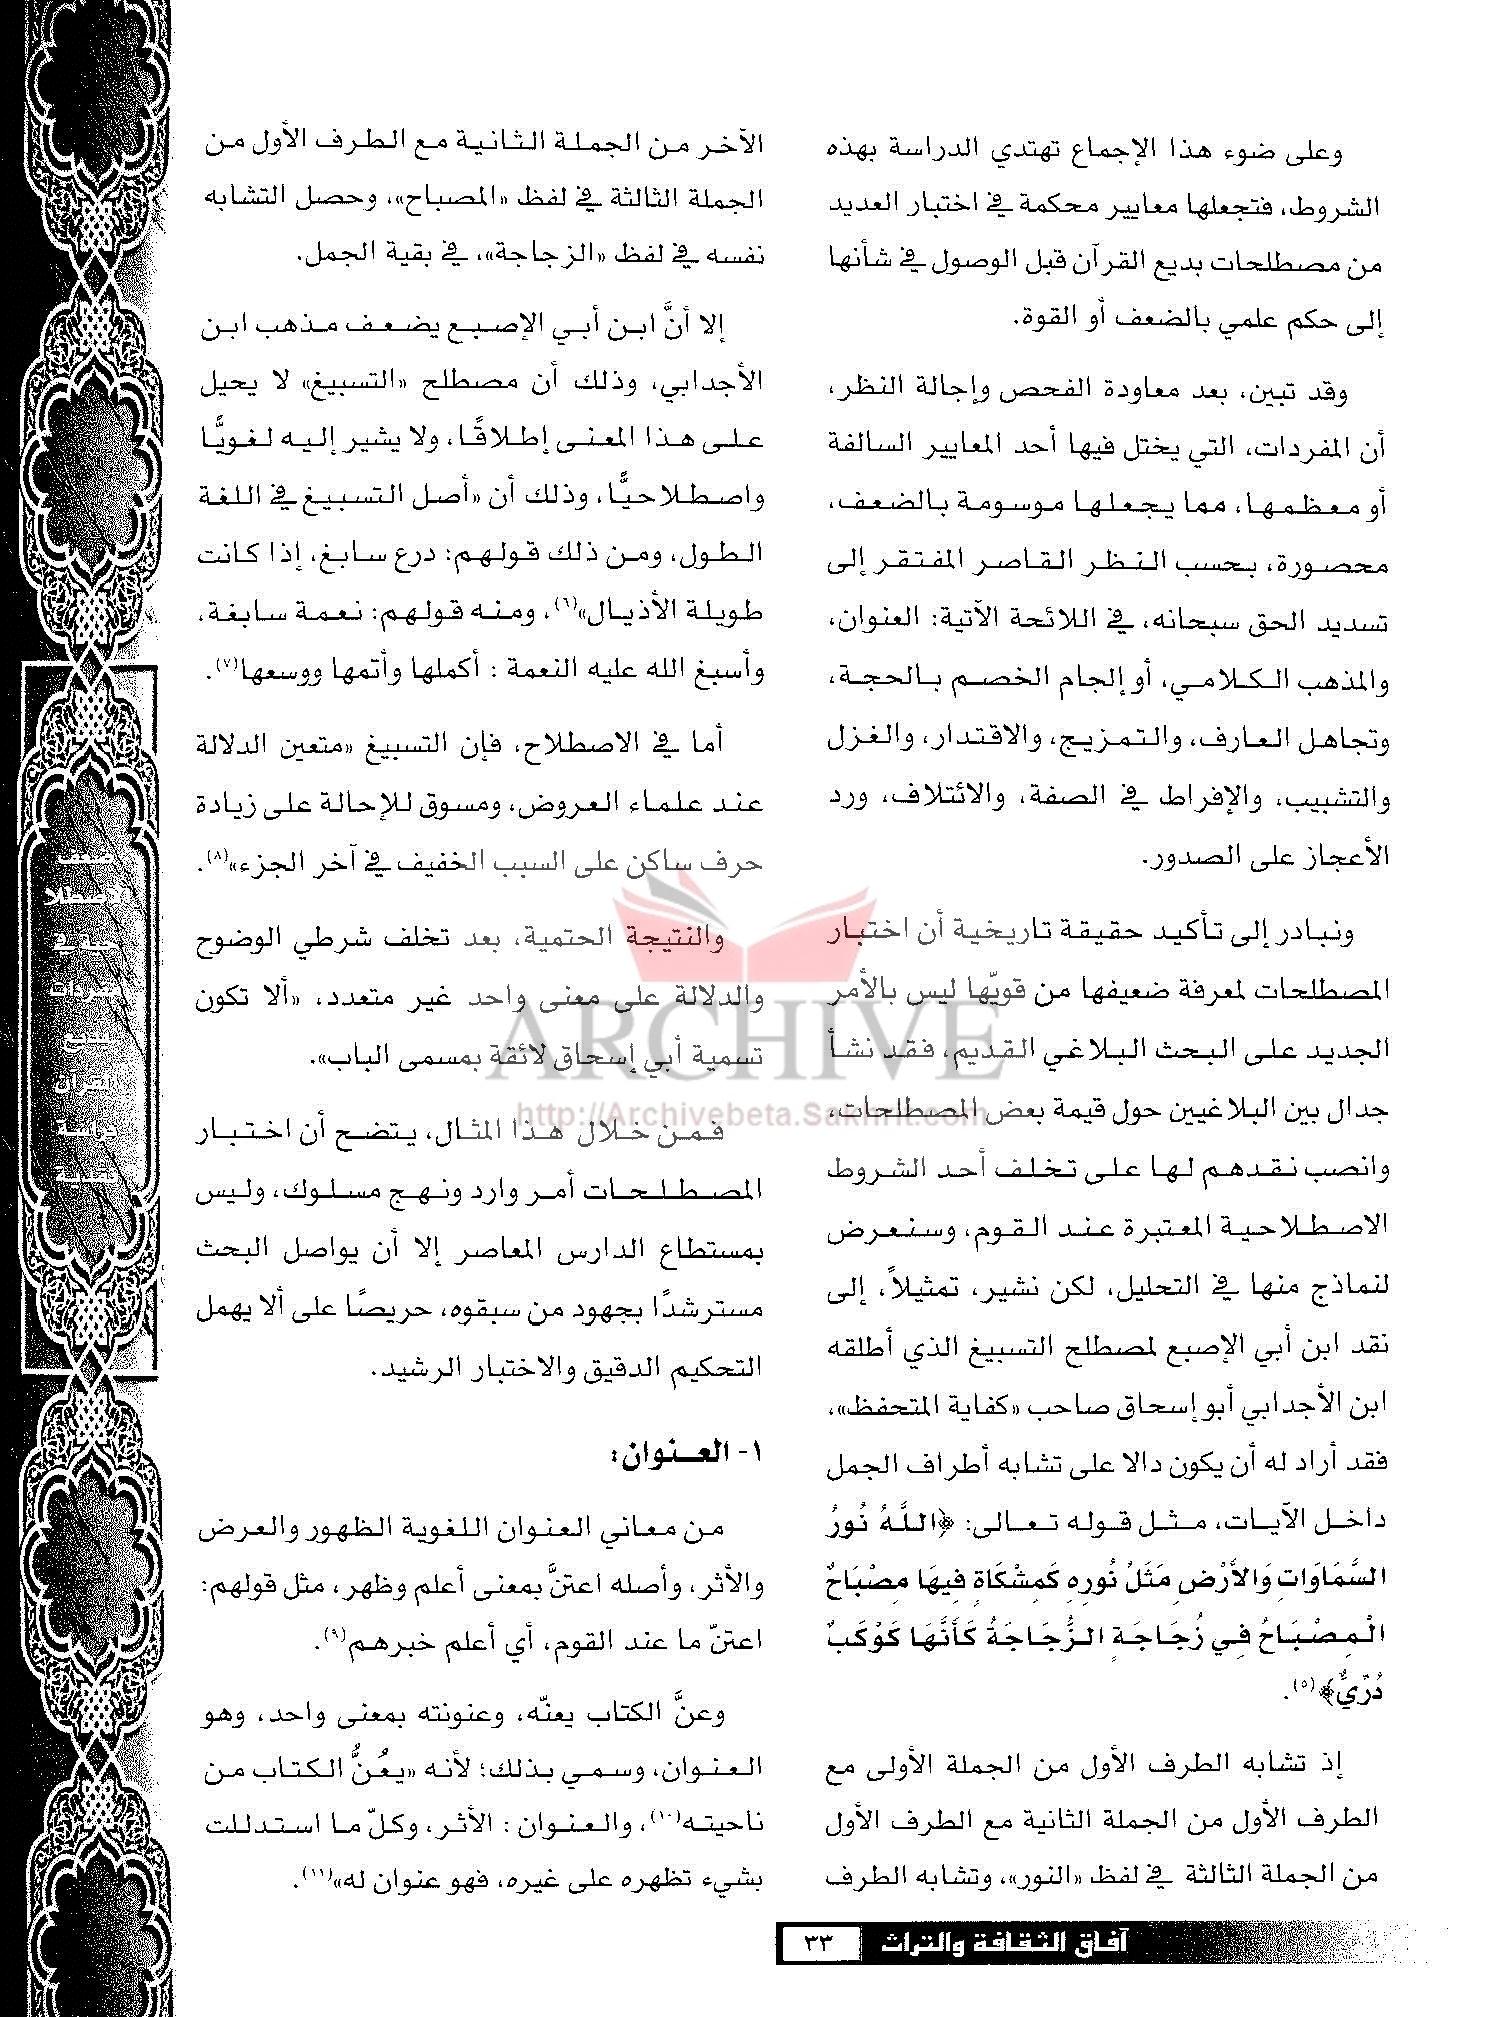 وعلى ضوء هذا الإجماع تهتدي الدراسة بهذه
الشروط، فتجعلها معايير محكمة في اختبار العديد
من مصطلحات بديع القرآن قبل الوصول في شأنها
إلى حكم علمي بالضعف أو القوة.
وقد تبين، بعد معاودة الفحص وإجالة النظر،
أن المفردات، التي يختل فيها أحد المعايير السالفة
أو معظمها، مما يجعلها موسومة بالضعف،
محصورة، بحسب النظر القاصر المفتقر إلى
تسديد الحق سبحانه، في اللائحة الآتية: العنوان،
والمذهب الكلامي، أو إلجام الخصم بالحجة،
وتجاهل العارف، والتمزيج، والاقتدار، والغزل
والتشبيب، والإفراط في الصفة، والائتلاف، ورد
الأعجاز على الصدور.
ونبادر إلى تأكيد حقيقة تاريخية أن اختبار
المصطلحات لمعرفة ضعيفها من قويّها ليس بالأمر
الجديد على البحث البلاغي القديم، فقد نشأ
جدال بين البلاغيين حول قيمة بعض المصطلحات،
وانصب نقدهم لها على تخلف أحد الشروط
الاصطلاحية المعتبرة عند القوم، وسنعرض
لنماذج منها في التحليل، لكن نشير، تمثيلاً، إلى
نقد ابن أبي الإصبع لمصطلح التسبيغ الذي أطلقه
ابن الأجدابي أبو إسحاق صاحب «كفاية المتحفظ»،
فقد أراد له أن يكون دالا على تشابه أطراف الجمل
داخل الآيات، مثل قوله تعالى: ﴿اللَّهُ نُورُ
السَّمَاوَاتِ وَالأَرْضِ مَثَلُ نُورِهِ كَمِشْكَاةٍ فِيهَا مِصْبَاحٌ
الْمِصْبَاحُ فِي زُجَاجَةٍ الزُّجَاجَةُ كَأَنَّهَا كَوْكَبٌ
دُرِّيٌّ﴾(٥).
إذ تشابه الطرف الأول من الجملة الأولى مع
الطرف الأول من الجملة الثانية مع الطرف الأول
من الجملة الثالثة في لفظ «النور»، وتشابه الطرف
الآخر من الجملة الثانية مع الطرف الأول من
الجملة الثالثة في لفظ «المصباح»، وحصل التشابه
نفسه في لفظ «الزجاجة»، في بقية الجمل.
إلا أنَّ ابن أبي الإصبع يضعف مذهب ابن
الأجدابي، وذلك أن مصطلح «التسبيغ» لا يحيل
على هذا المعنى إطلاقًا، ولا يشير إليه لغويًّا
واصطلاحيًّا، وذلك أن «أصل التسبيغ في اللغة
الطول، ومن ذلك قولهم: درع سابغ، إذا كانت
طويلة الأذيال»(٦)، ومنه قولهم: نعمة سابغة،
وأسبغ الله عليه النعمة : أكملها وأتمها ووسعها(٧).
أما في الاصطلاح، فإن التسبيغ «متعين الدلالة
عند علماء العروض، ومسوق للإحالة على زيادة
حرف ساكن على السبب الخفيف في آخر الجزء»(٨).
والنتيجة الحتمية، بعد تخلف شرطي الوضوح
والدلالة على معنى واحد غير متعدد، «ألا تكون
تسمية أبي إسحاق لائقة بمسمى الباب».
فمن خلال هذا المثال، يتضح أن اختبار
المصطلحات أمر وارد ونهج مسلوك، وليس
بمستطاع الدارس المعاصر إلا أن يواصل البحث
مسترشدًا بجهود من سبقوه، حريصًا على ألا يهمل
التحكيم الدقيق والاختبار الرشيد.
١- العنوان:
من معاني العنوان اللغوية الظهور والعرض
والأثر، وأصله اعتنَّ بمعنى أعلم وظهر، مثل قولهم:
اعتنّ ما عند القوم، أي أعلم خبرهم(٩).
وعنَّ الكتاب يعنّه، وعنونته بمعنى واحد، وهو
العنوان، وسمي بذلك؛ لأنه «يعُنُّ الكتاب من
ناحيته(١٠)، والعنوان : الأثر، وكلّ ما استدللت
بشيء تظهره على غيره، فهو عنوان له»(١١).
آفاق الثقافة والتراث ٣٣
ARCHIVE
http://Archivebeta.Sakhrit.com